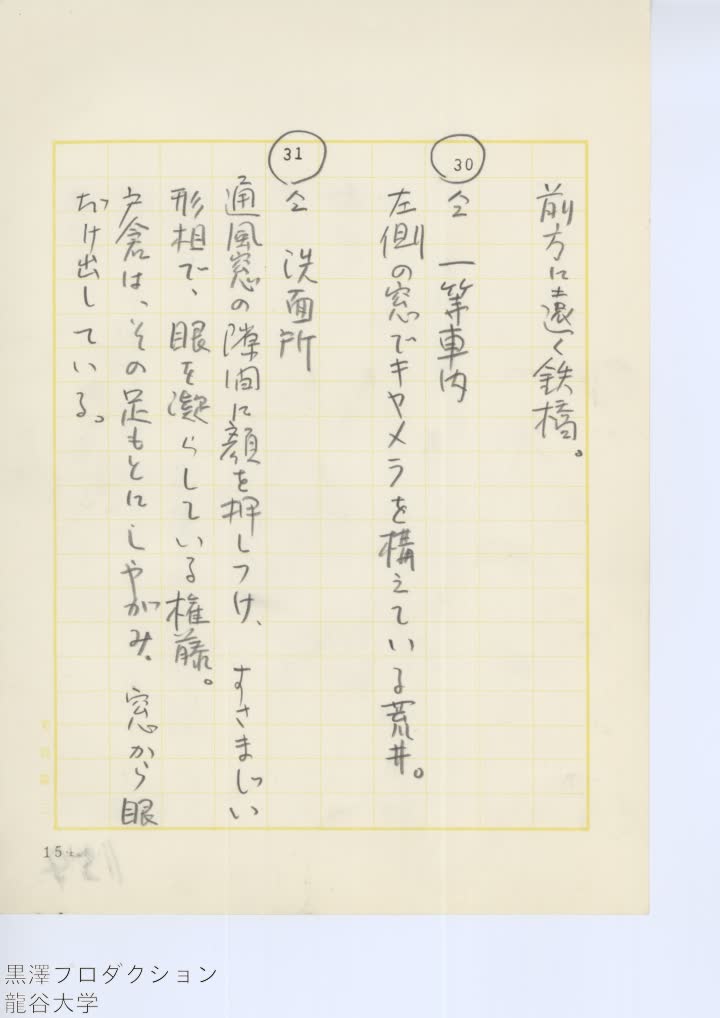 前方に遠く鉄橋。
30
仝 一等車内
左側の窓でキヤメラを構えている荒井。
31
仝 洗面所
通風窓の隙間に顔を押しつけ、すさまじい
形相で、眼を凝らしている権藤。
戸倉は、その足もとにしやがみ、窓から眼
だけ出している。
154
黒澤プロダクション
龍谷大学